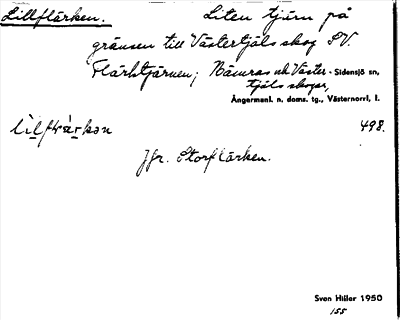 Lillflärken. Liten tjärn på
gränsen till Västertjäls skog SV.
Flärktjärnen; Nämras och Väster - Sidensjö sn,
tjäls skogar,
Ångermanl. n. doms. tg., Västernorrl, l.
498.
Jfr. Storflärken.
Sven Hiller 1950
155